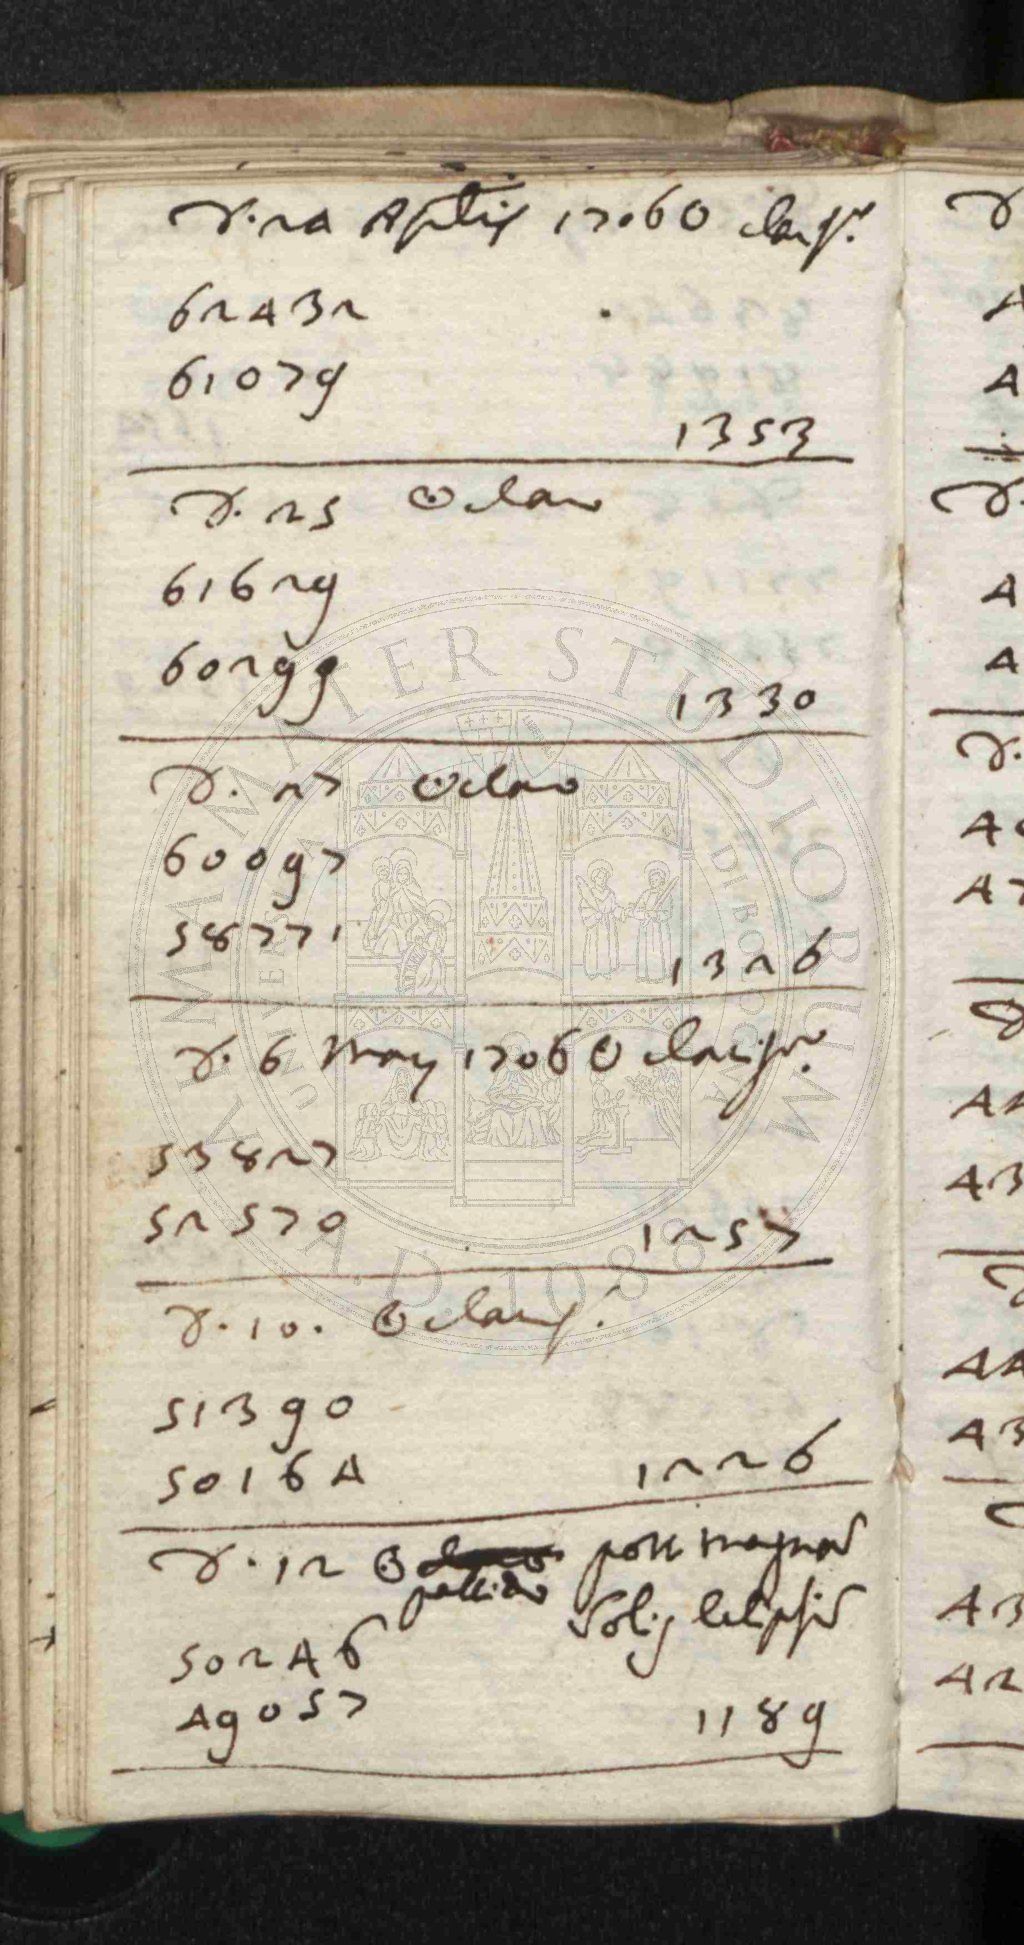 D. 24 Aprilis 1706 ☉ claris.
62432
61079
1353
D. 25 ☉ claro
61629
60299
1330
D. 27 ☉ claro
60097
58771
1326
D. 6 May 1706 ☉ claris.
53827
52570
1257
D. 10. ☉ claris.
51390
50164
1226
D. 12 ☉ pallido post magnam
Solis Eclipsim
50246
49057
1189
ALMA MATER STUDIORUM
A.D. 1088